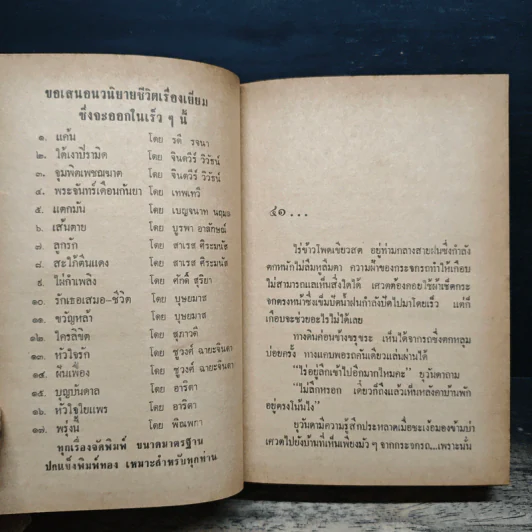 ขอเสนอนวนิยายชีวิตเรื่องเยี่ยม
ซึ่งจะออกในเร็ว ๆ นี้
๑. แค้น โดย รตี รจนา
๒. ใต้เงาปิรามิด โดย จินตวีร์ วิวัธน์
๓. จุมพิตเพชฌฆาต โดย จินตวีร์ วิวัธน์
๔. พระจันทร์เดือนกันยา โดย เทพเทวี
๕. แตกมัน โดย เบญจนาท นฤมล
๖. เส้นตาย โดย บูรพา อาลักษณ์
๗. ลูกรัก โดย สาเรส ศิระมนัส
๘. สะใภ้ดินแดง โดย สาเรส ศิระมนัส
๙. ไผ่กำเพลิง โดย ศักดิ์ สุริยา
๑๐. รักเธอเสมอ-ชีวิต โดย บุษยมาส
๑๑. ขวัญหล้า โดย บุษยมาส
๑๒. ใครลิขิต โดย สุภาวดี
๑๓. หัวใจรัก โดย ชูวงศ์ ฉายะจินดา
๑๔. ผืนเฟื่อง โดย ชูวงศ์ ฉายะจินดา
๑๕. บุญบันดาล โดย อาริตา
๑๖. หัวใจใยแพร โดย อาริตา
๑๗. พรุ่งนี้ โดย พิณพกา
ทุกเรื่องจัดพิมพ์ ขนาดมาตรฐาน
ปกแข็งพิมพ์ทอง เหมาะสำหรับทุกท่าน
๔๑...
ไร่ข้าวโพดเขียวสด อยู่ท่ามกลางสายฝนซึ่งกำลัง
ตกหนักไม่ลืมหูลืมตา ความฝ้าของกระจกรถทำให้เกือบ
ไม่สามารถแลเห็นสิ่งใดได้ เศวตต้องคอยใช้ผ้าเช็ดกระ
จกตรงหน้าซึ่งเข็มปัดน้ำฝนกำลังปัดไปมาโดยเร็ว แต่ก็
เกือบจะช่วยอะไรไม่ได้เลย
ทางดินค่อนข้างขรุขระ เห็นได้จากรถซึ่งตกหลุม
บ่อยครั้ง ทางแคบพอรถคันเดียวแล่นผ่านได้
“ไร่อยู่ลึกเข้าไปอีกมากไหมคะ” ยุวันดาถาม
“ไม่ลึกหรอก เดี๋ยวก็ถึงแล้วเห็นหลังคาบ้านพัก
อยู่ตรงโน้นไง”
ยุวันดามีความรู้สึกประหลาดเมื่อชะเง้อมองข้ามบ่า
เศวตไปยังบ้านที่เห็นเพียงมัว ๆ จากกระจกรถ...เพราะนั่น